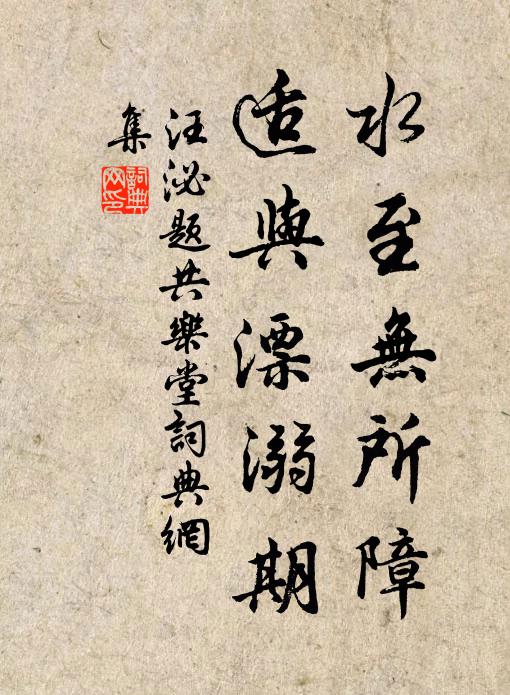 水至無所障
适與漂溺期
汪泌题共樂堂詞典網
集
詞典
网印